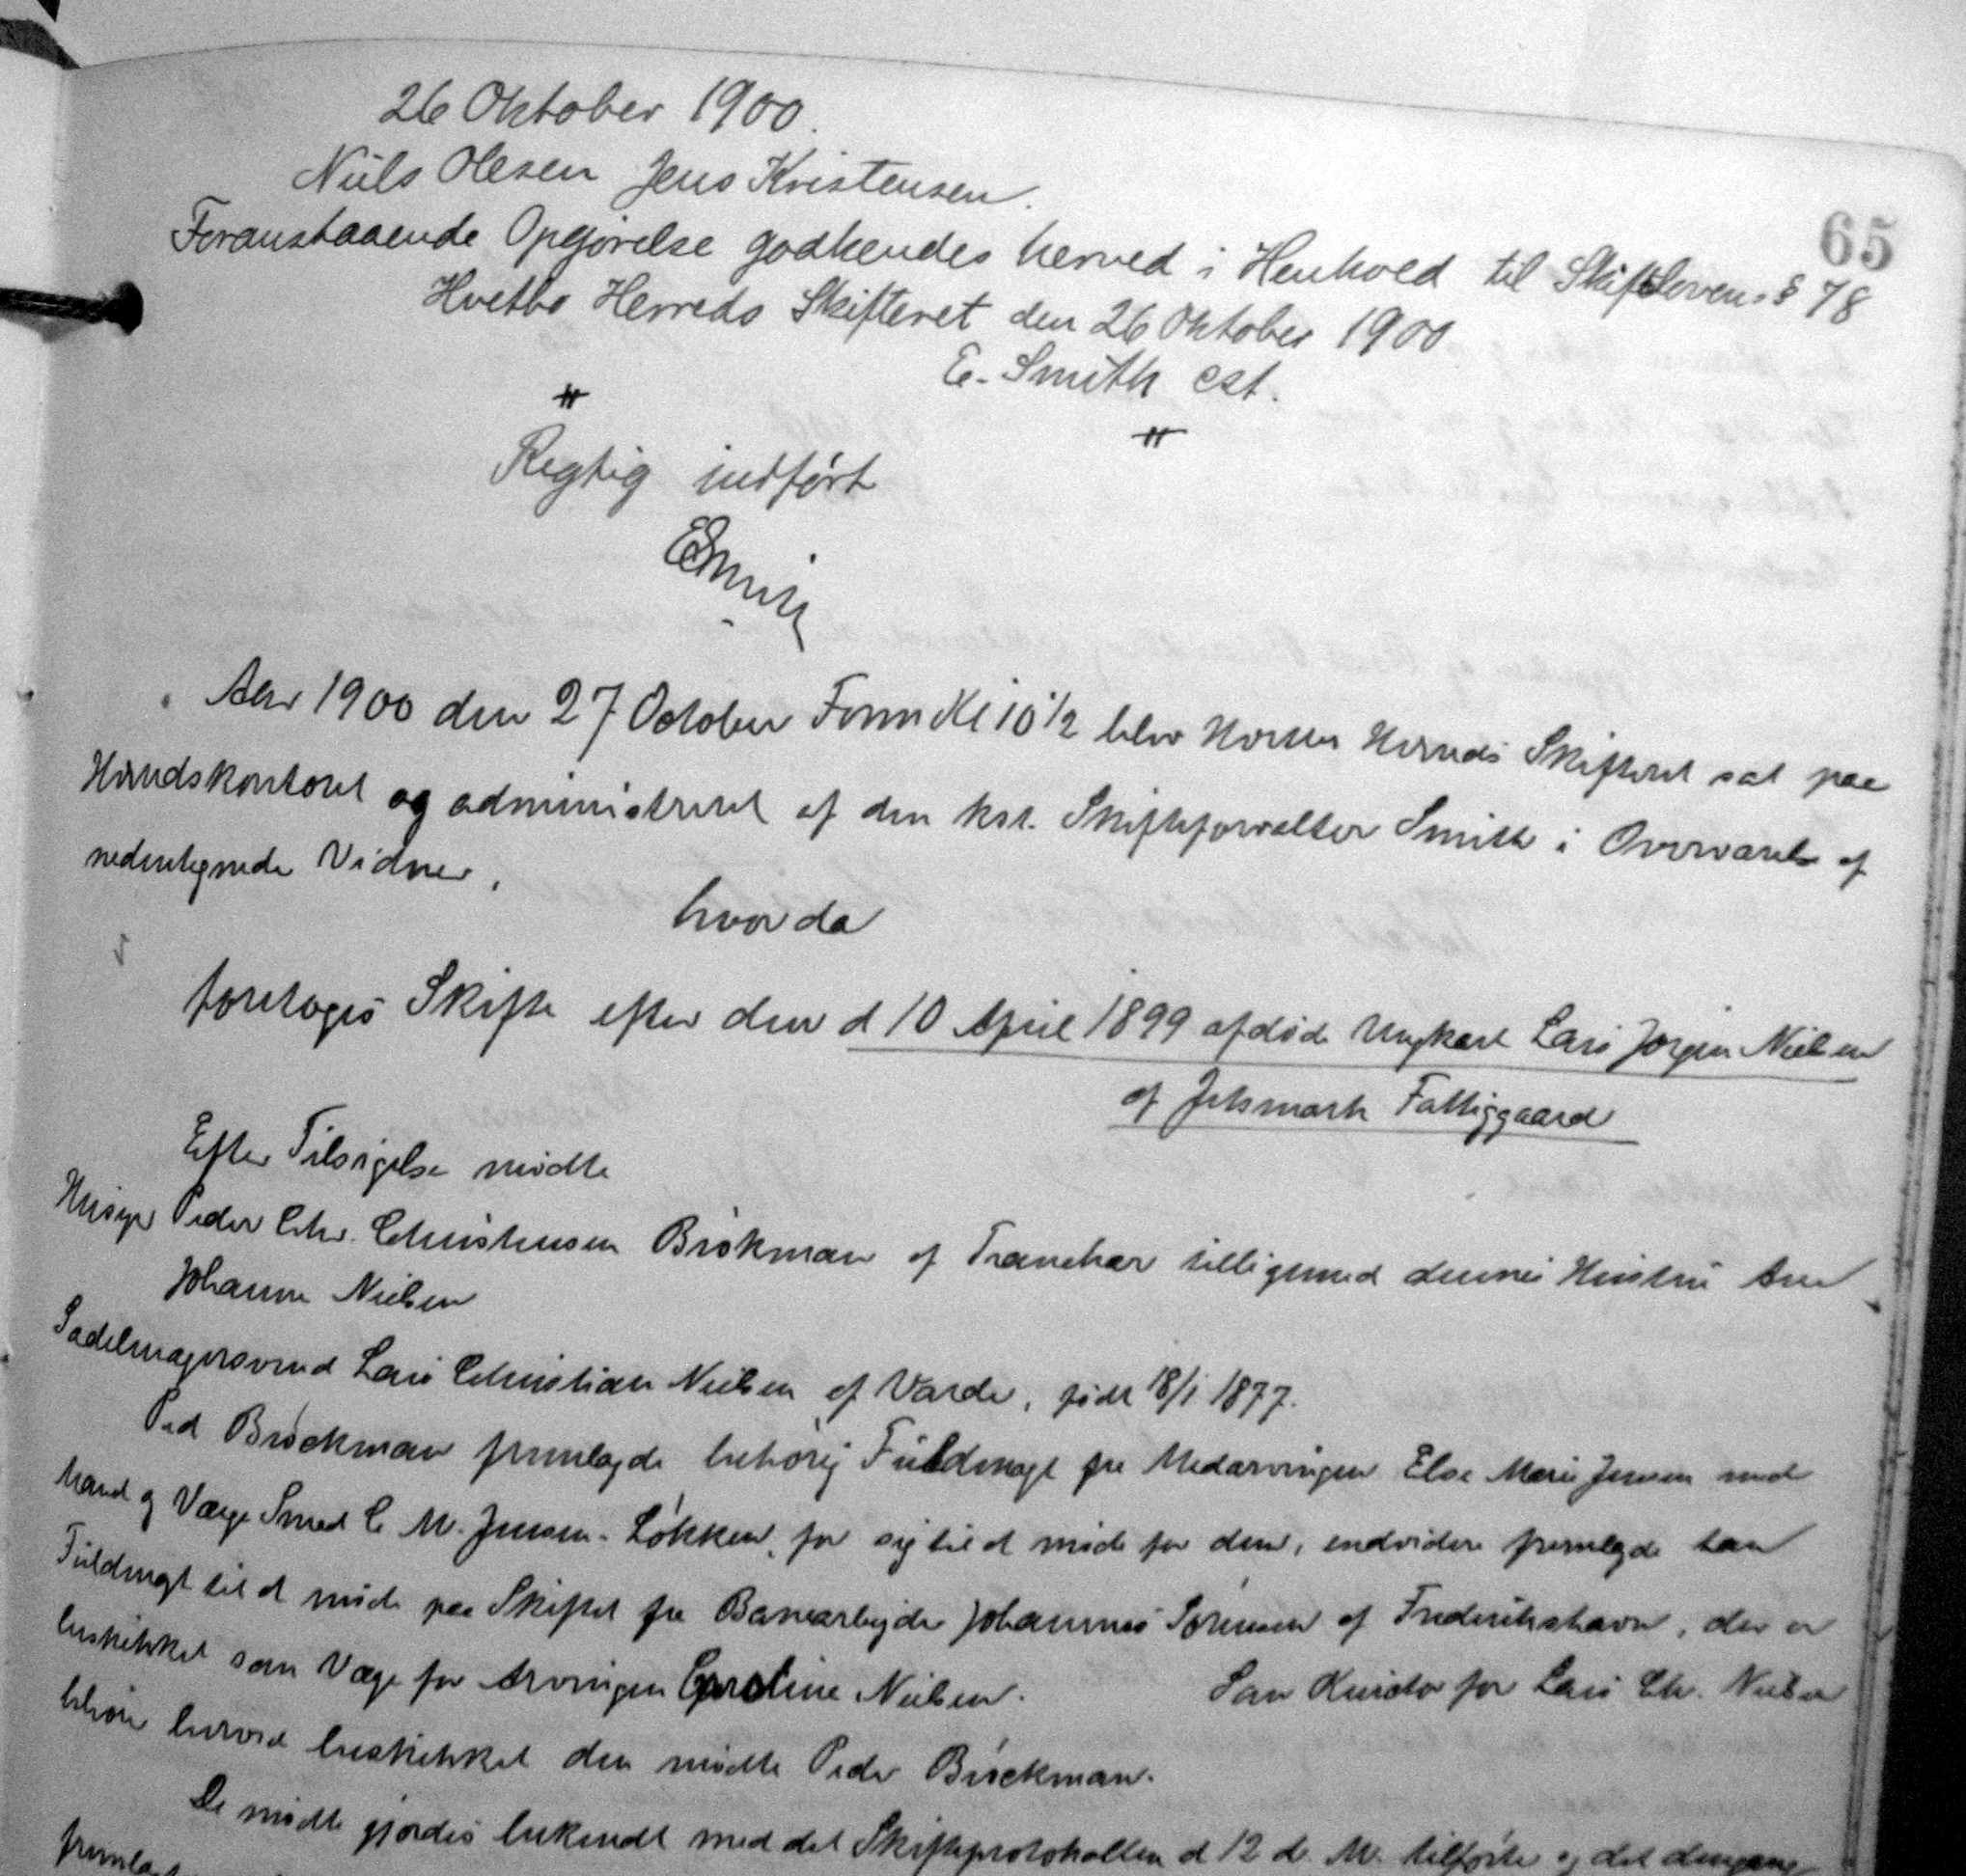 26 Oktober 1900.
Niels Olesen Jens Kristensen.
65
Foranstaaende Opgjørelse godkendes herved i Henhold til Skiftelovens § 78
Hvetbo Herreds Skifteret den 26 Oktober 1900
E. Smith cst.
Rigtig indført
ESmith
Aar 1900 den 27 October Form Kl 10 1/2 blev Skifteret sat paa
Herredskontoret og administreret af den kst. Skifteforvalter Smith i Overværelse af
nedentegnede Vidner,
hvor da
foretoges Skifte efter den d 10 April 1899 afdøde Ungkarl Lars Jørgen Nielsen
af Jetsmark Fattiggaard
Efter Tilsigelse mødte
Husejer Peder Chr. Christensen Brøkman af Tranekær tilligemed dennes Hustru Ane
Johanne Nielsen
Sadelmagersvend Lars Christian Nielsen af Varde, født 18/1 1877.
Ped Brøckman fremlagde behørig Fuldmagt fra Medarvingen Else Marie Jensen med
Mand og Værge Smed C M. Jensen - Løkken, for sig til at møde for dem, endvidere fremlagde han
Fuldmagt til at møde paa Skiftet fra Banearbejder Johannes Sørensen af Frederikshavn, der er
beskikket som Værge for Arvingen Caroline Nielsen. Som Kurator for Lars Chr. Nielsen
blev herved beskikket den mødte Peder Brøckman.
De mødte gjordes bekendt med det Skifteprotokollen d 12 d. M. tilførte og det dengang